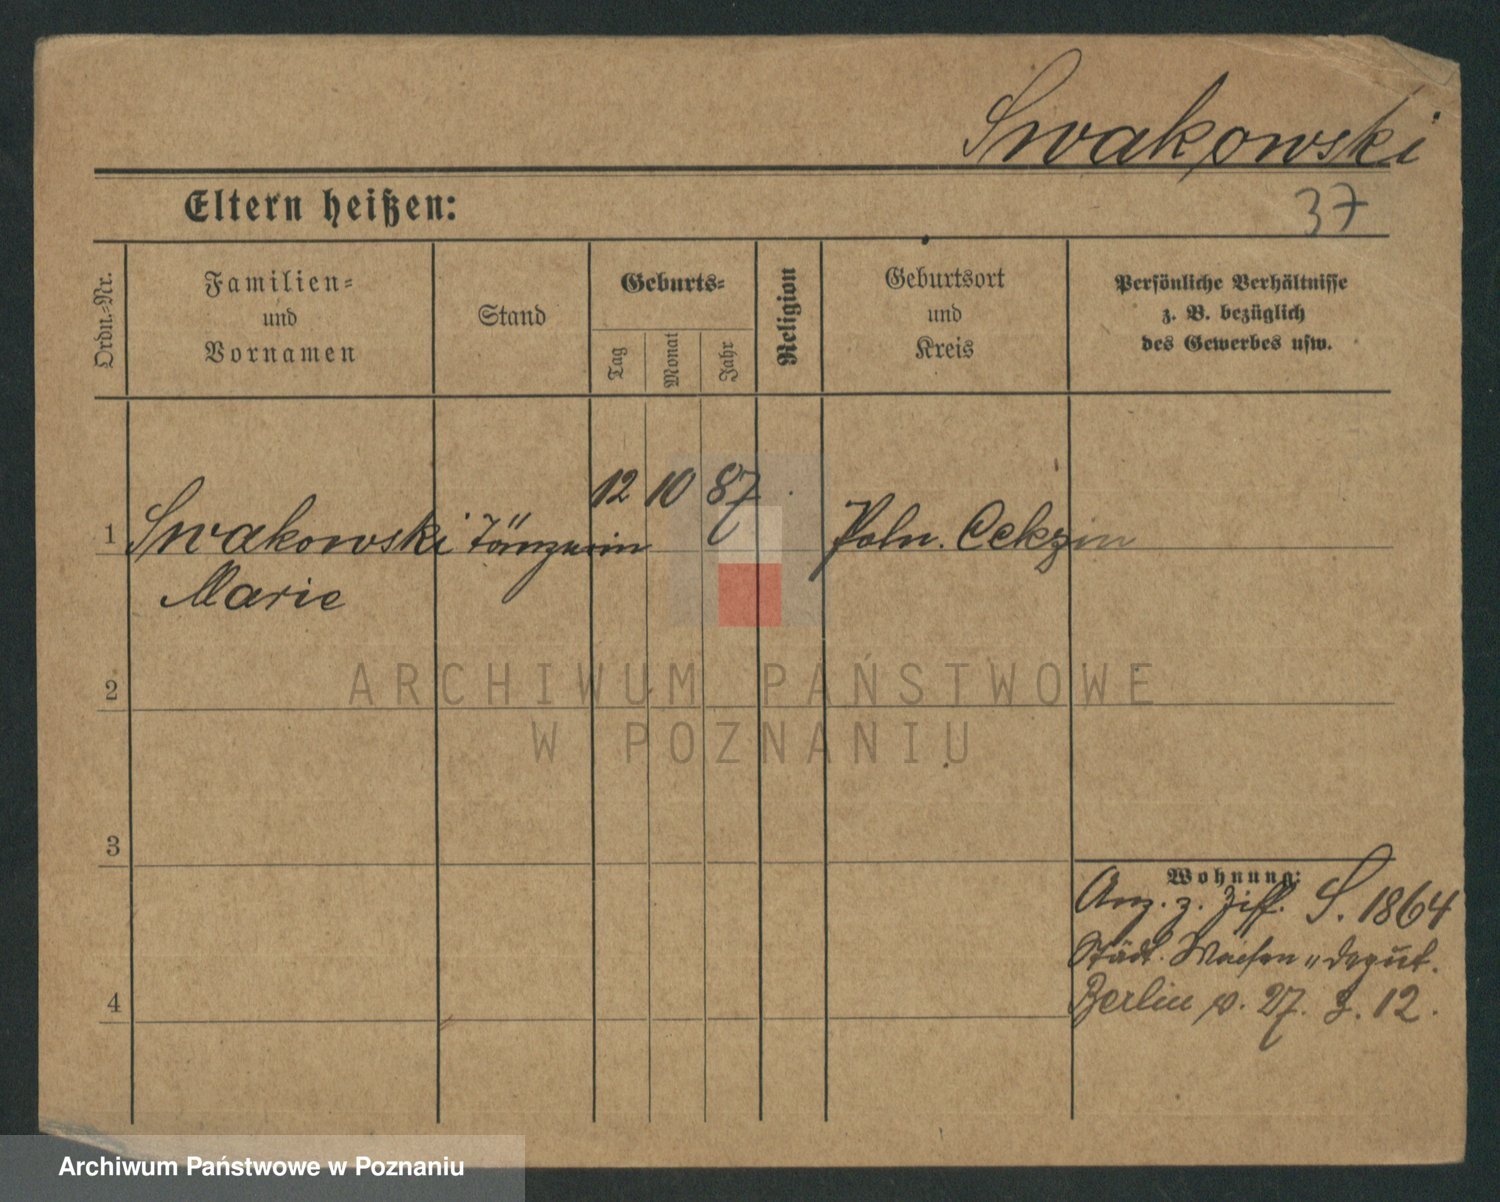 Swakowski
Eltern heißen:
37
Ordn.-Nr.
Familien-
und
Vornamen
Stand
Geburts-
Tag
Monat
Jahr
Religion
Geburtsort
und
Kreis
Persönliche Verhältnisse
z. B. bezüglich
des Gewerbes usw.
1 Swakowski Tänzerin 12 10 87 Poln. Cekzin
Marie
ARCHIWUM PAŃSTWOWE
W POZNANIU
2
3
Wohnung:
Anz. z. Ziff. S. 1864
Städt. Waisen-Deput.
Berlin v. 27. 3. 12.
4
Archiwum Państwowe w Poznaniu